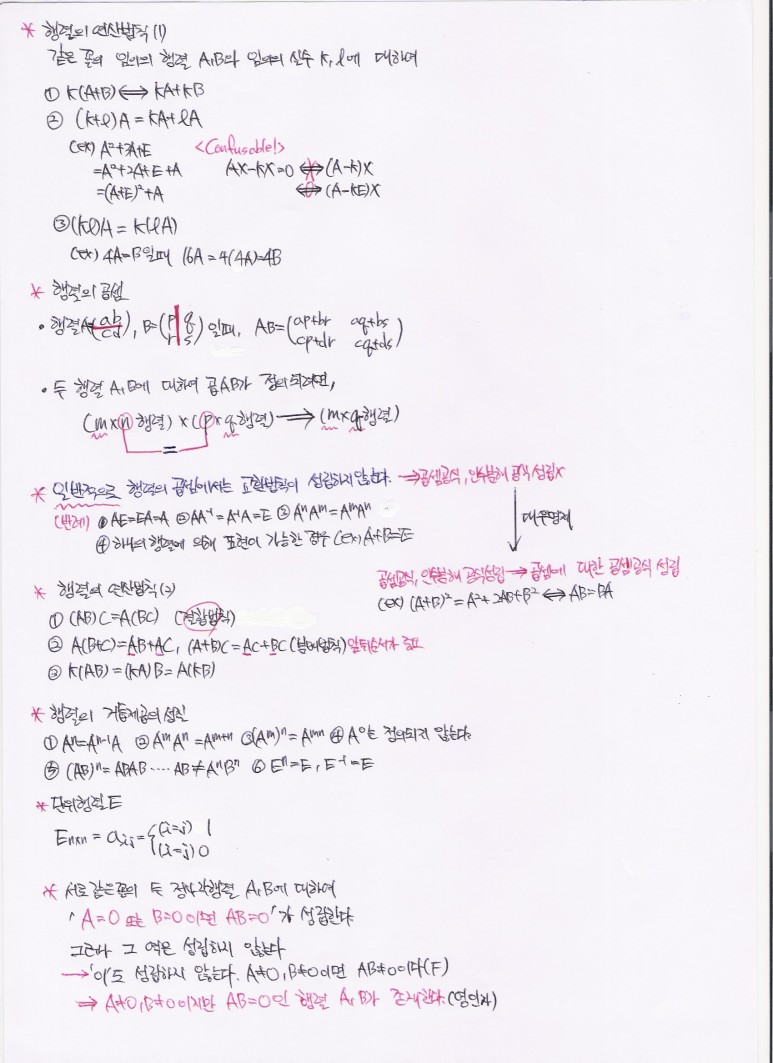 * 행렬의 연산법칙(1)
같은 꼴의 임의의 행렬 A,B와 임의의 실수 k,l에 대하여
① k(A+B)⟺kA+kB
② (k+l)A=kA+lA
(ex) A²+3A+E
=A²+2A+E+A
=(A+E)²+A
<Confusable!>
AX-kX=0 ⟺(A-k)X
⟺(A-kE)X
③ (kl)A=k(lA)
(ex) 4A=B일때 16A=4(4A)=4B
* 행렬의 곱셈
• 행렬A=(ab cd), B=(p q r s) 일때, AB=(ap+br aq+bs
cp+dr cq+ds)
• 두 행렬 A,B에 대하여 곱AB가 정의되려면,
(m×n행렬)×(p×q행렬)⟹(m×q행렬)
=
* 일반적으로 행렬의 곱셈에서는 교환법칙이 성립하지않는다. →곱셈공식, 인수분해 공식 성립X
(반례) ① AE=EA=A ② AA⁻¹=A⁻¹A=E ③ AⁿAᵐ=AᵐAⁿ
④ 하나의 행렬에 의해 표현이 가능한 경우 (ex) A+B=E
대우명제
곱셈공식, 인수분해 공식성립 → 곱셈에 대한 곱셈공식 성립
(ex) (A+B)²=A²+2AB+B² ⟺ AB=BA
* 행렬의 연산법칙(2)
① (AB)C=A(BC) (결합법칙)
② A(B+C)=AB+AC, (A+B)C=AC+BC (분배법칙) 앞뒤순서가 중요
③ k(AB)=(kA)B=A(kB)
* 행렬의 거듭제곱의 성질
① Aⁿ=Aⁿ⁻¹A ② AᵐAⁿ=Aᵐ⁺ⁿ ③(Aᵐ)ⁿ=Aᵐⁿ ④ A⁰는 정의되지 않는다.
⑤ (AB)ⁿ=ABAB····AB≠AⁿBⁿ ⑥ Eⁿ=E, E⁻¹=E
* 단위행렬E
Eₙₓₙ = aᵢⱼ = {(i=j) 1
(i=j) 0
* 서로 같은꼴의 두 정사각행렬 A,B에 대하여
'A=0 또는 B=0이면 AB=0'가 성립한다.
그러나 그 역은 성립하지 않는다
→'이'도 성립하지 않는다. A≠0,B≠0이면 AB≠0이다(F)
⇒ A≠0,B≠0이지만 AB=0인 행렬 A,B가 존재한다.(영인자)